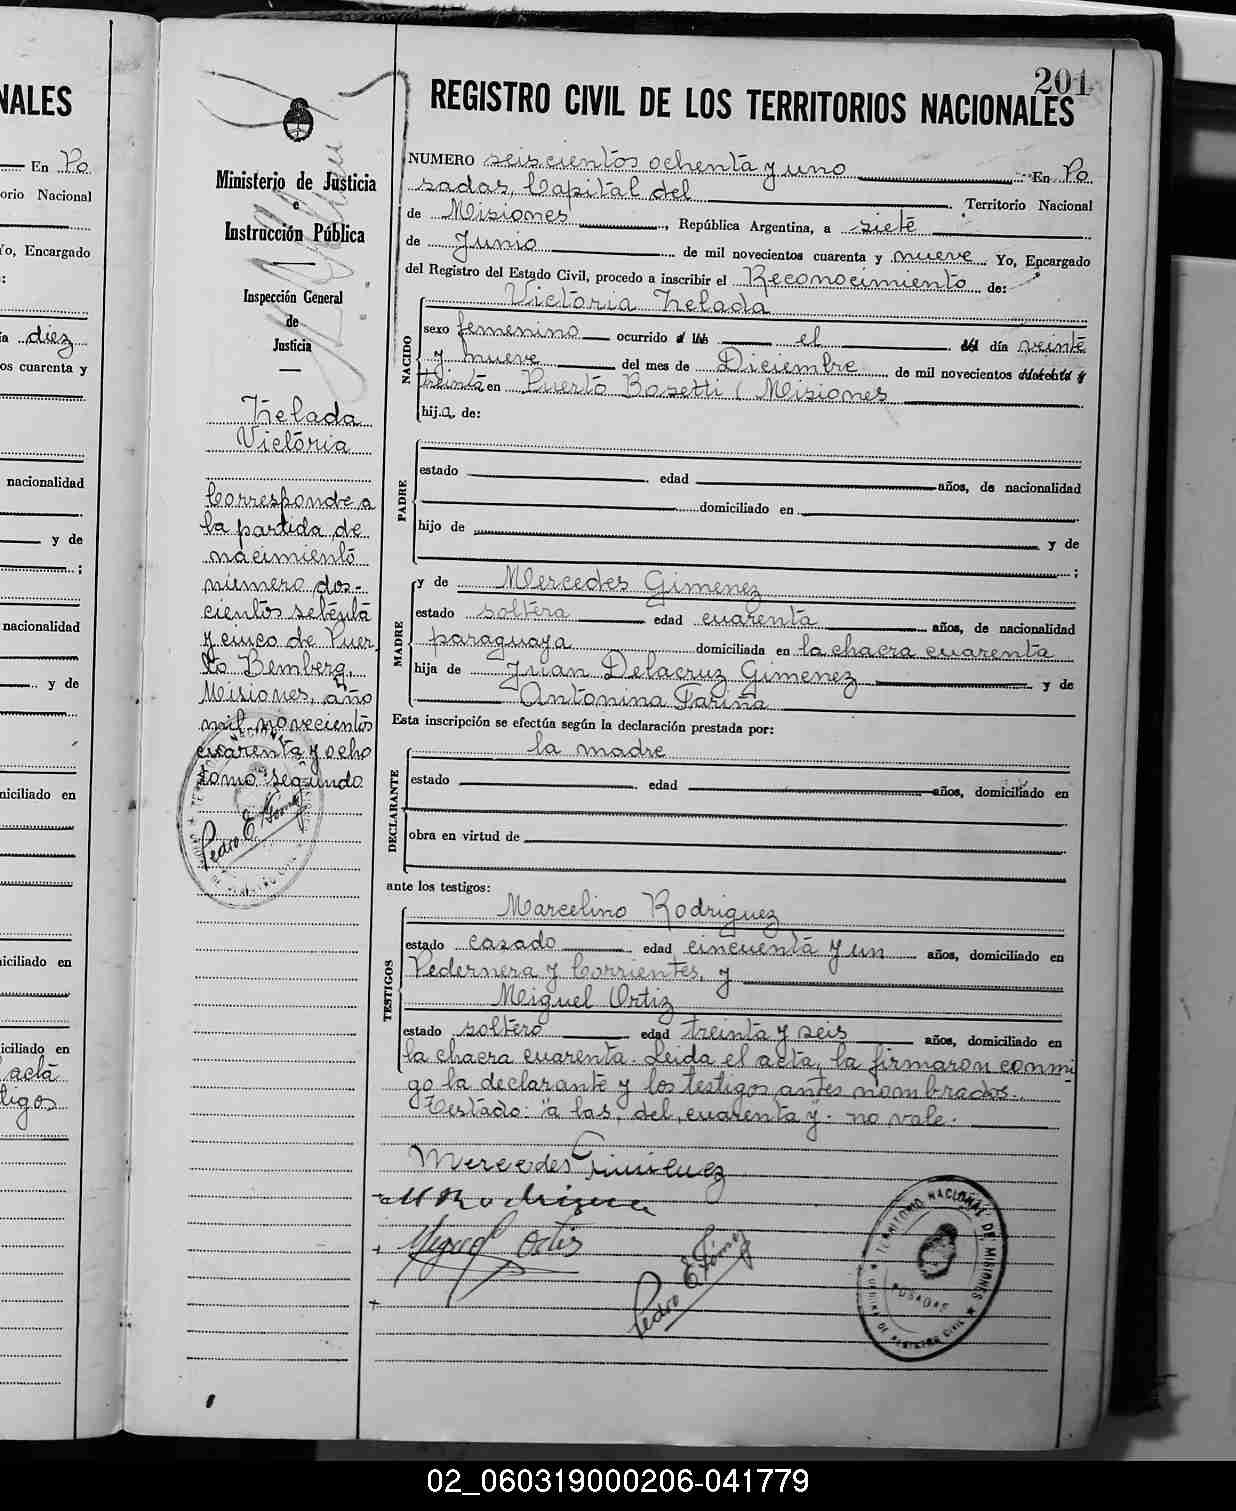 201
REGISTRO CIVIL DE LOS TERRITORIOS NACIONALES
NALES
En Po
orio Nacional
Yo, Encargado
:
ia diez
os cuarenta y
nacionalidad
y de
;
nacionalidad
y de
niciliado en
iciliado en
iciliado en
acta
tigos
Ministerio de Justicia
e
Instrucción Pública
Inspección General
de
Justicia
Zelada
Victoria
Corresponde a
la partida de
nacimiento
número dos-
cientos setenta
y cinco de Puer
to Bemberg,
Misiones, año
mil novecientos
cuarenta y ocho
tomo segundo
Pedro E Gómez
NUMERO seiscientos ochenta y uno En Po
sadas, Capital del Territorio Nacional
de Misiones, República Argentina, a siete
de Junio de mil novecientos cuarenta y nueve Yo, Encargado
del Registro del Estado Civil, procedo a inscribir el Reconocimiento de:
Victoria Zelada
NACIDO
sexo femenino ocurrido a las el del día veinte
y nueve del mes de Diciembre de mil novecientos cuarenta y
treinta en Puerto Bosetti (Misiones
hija de:
PADRE
estado edad años, de nacionalidad
domiciliado en
hijo de y de
;
MADRE
y de Mercedes Gimenez
estado soltera edad cuarenta años, de nacionalidad
paraguaya domiciliada en la chacra cuarenta
hija de Juan Delacruz Gimenez y de
Antonina Fariña
Esta inscripción se efectúa según la declaración prestada por:
DECLARANTE
la madre
estado edad años, domiciliado en
obra en virtud de
ante los testigos:
TESTIGOS
Marcelino Rodriguez
estado casado edad cincuenta y un años, domiciliado en
Pedernera y Corrientes, y
Miguel Ortiz
estado soltero edad treinta y seis años, domiciliado en
la chacra cuarenta. Leida el acta, la firmaron conmi
go la declarante y los testigos antes nombrados.
Testado: "a las, del, cuarenta y". no vale.
Mercedes Gimenez
M Rodriguez
Miguel Ortiz
Pedro E Gómez
TERRITORIO NACIONAL DE MISIONES
POSADAS
DE REGISTRO CIVIL
02_060319000206-041779